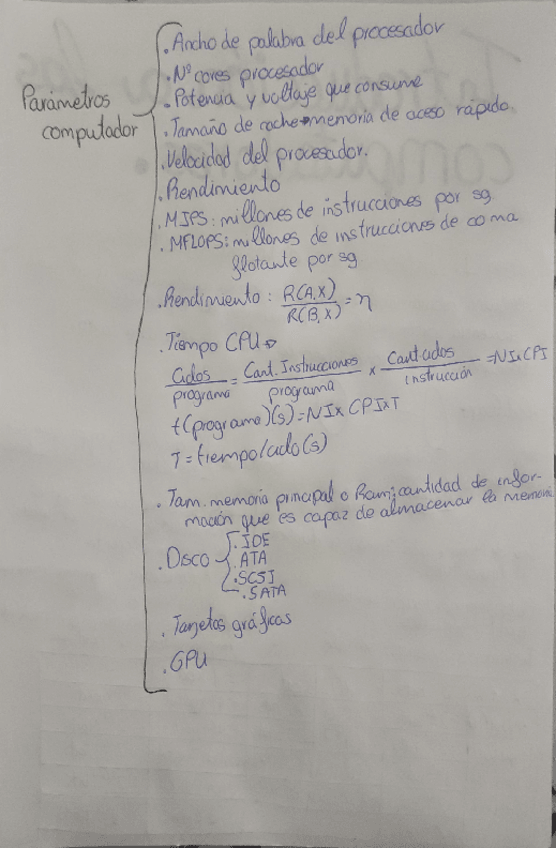 Parámetros
computador
. Ancho de palabra del procesador
. Nº cores procesador
. Potencia y voltaje que consume
. Tamaño de cache→memoria de aceso rápido.
. Velocidad del procesador.
. Rendimiento
. MIPS: millones de instrucciones por sg
. MFLOPS: millones de instrucciones de coma
flotante por sg
. Rendimiento: R(A,X)/R(B,X) = n
. Tiempo CPU→
Ciclos/programa = Cant. Instrucciones/programa x Cant ciclos/instrucción = NI x CPI
t(programa)(s) = NI x CPI x T
T = tiempo/ciclo(s)
. Tam. memoria principal o Ram: cantidad de infor-
mación que es capaz de almacenar la memoria
. Disco
. IDE
. ATA
. SCSI
. SATA
. Tarjetas gráficas
. GPU